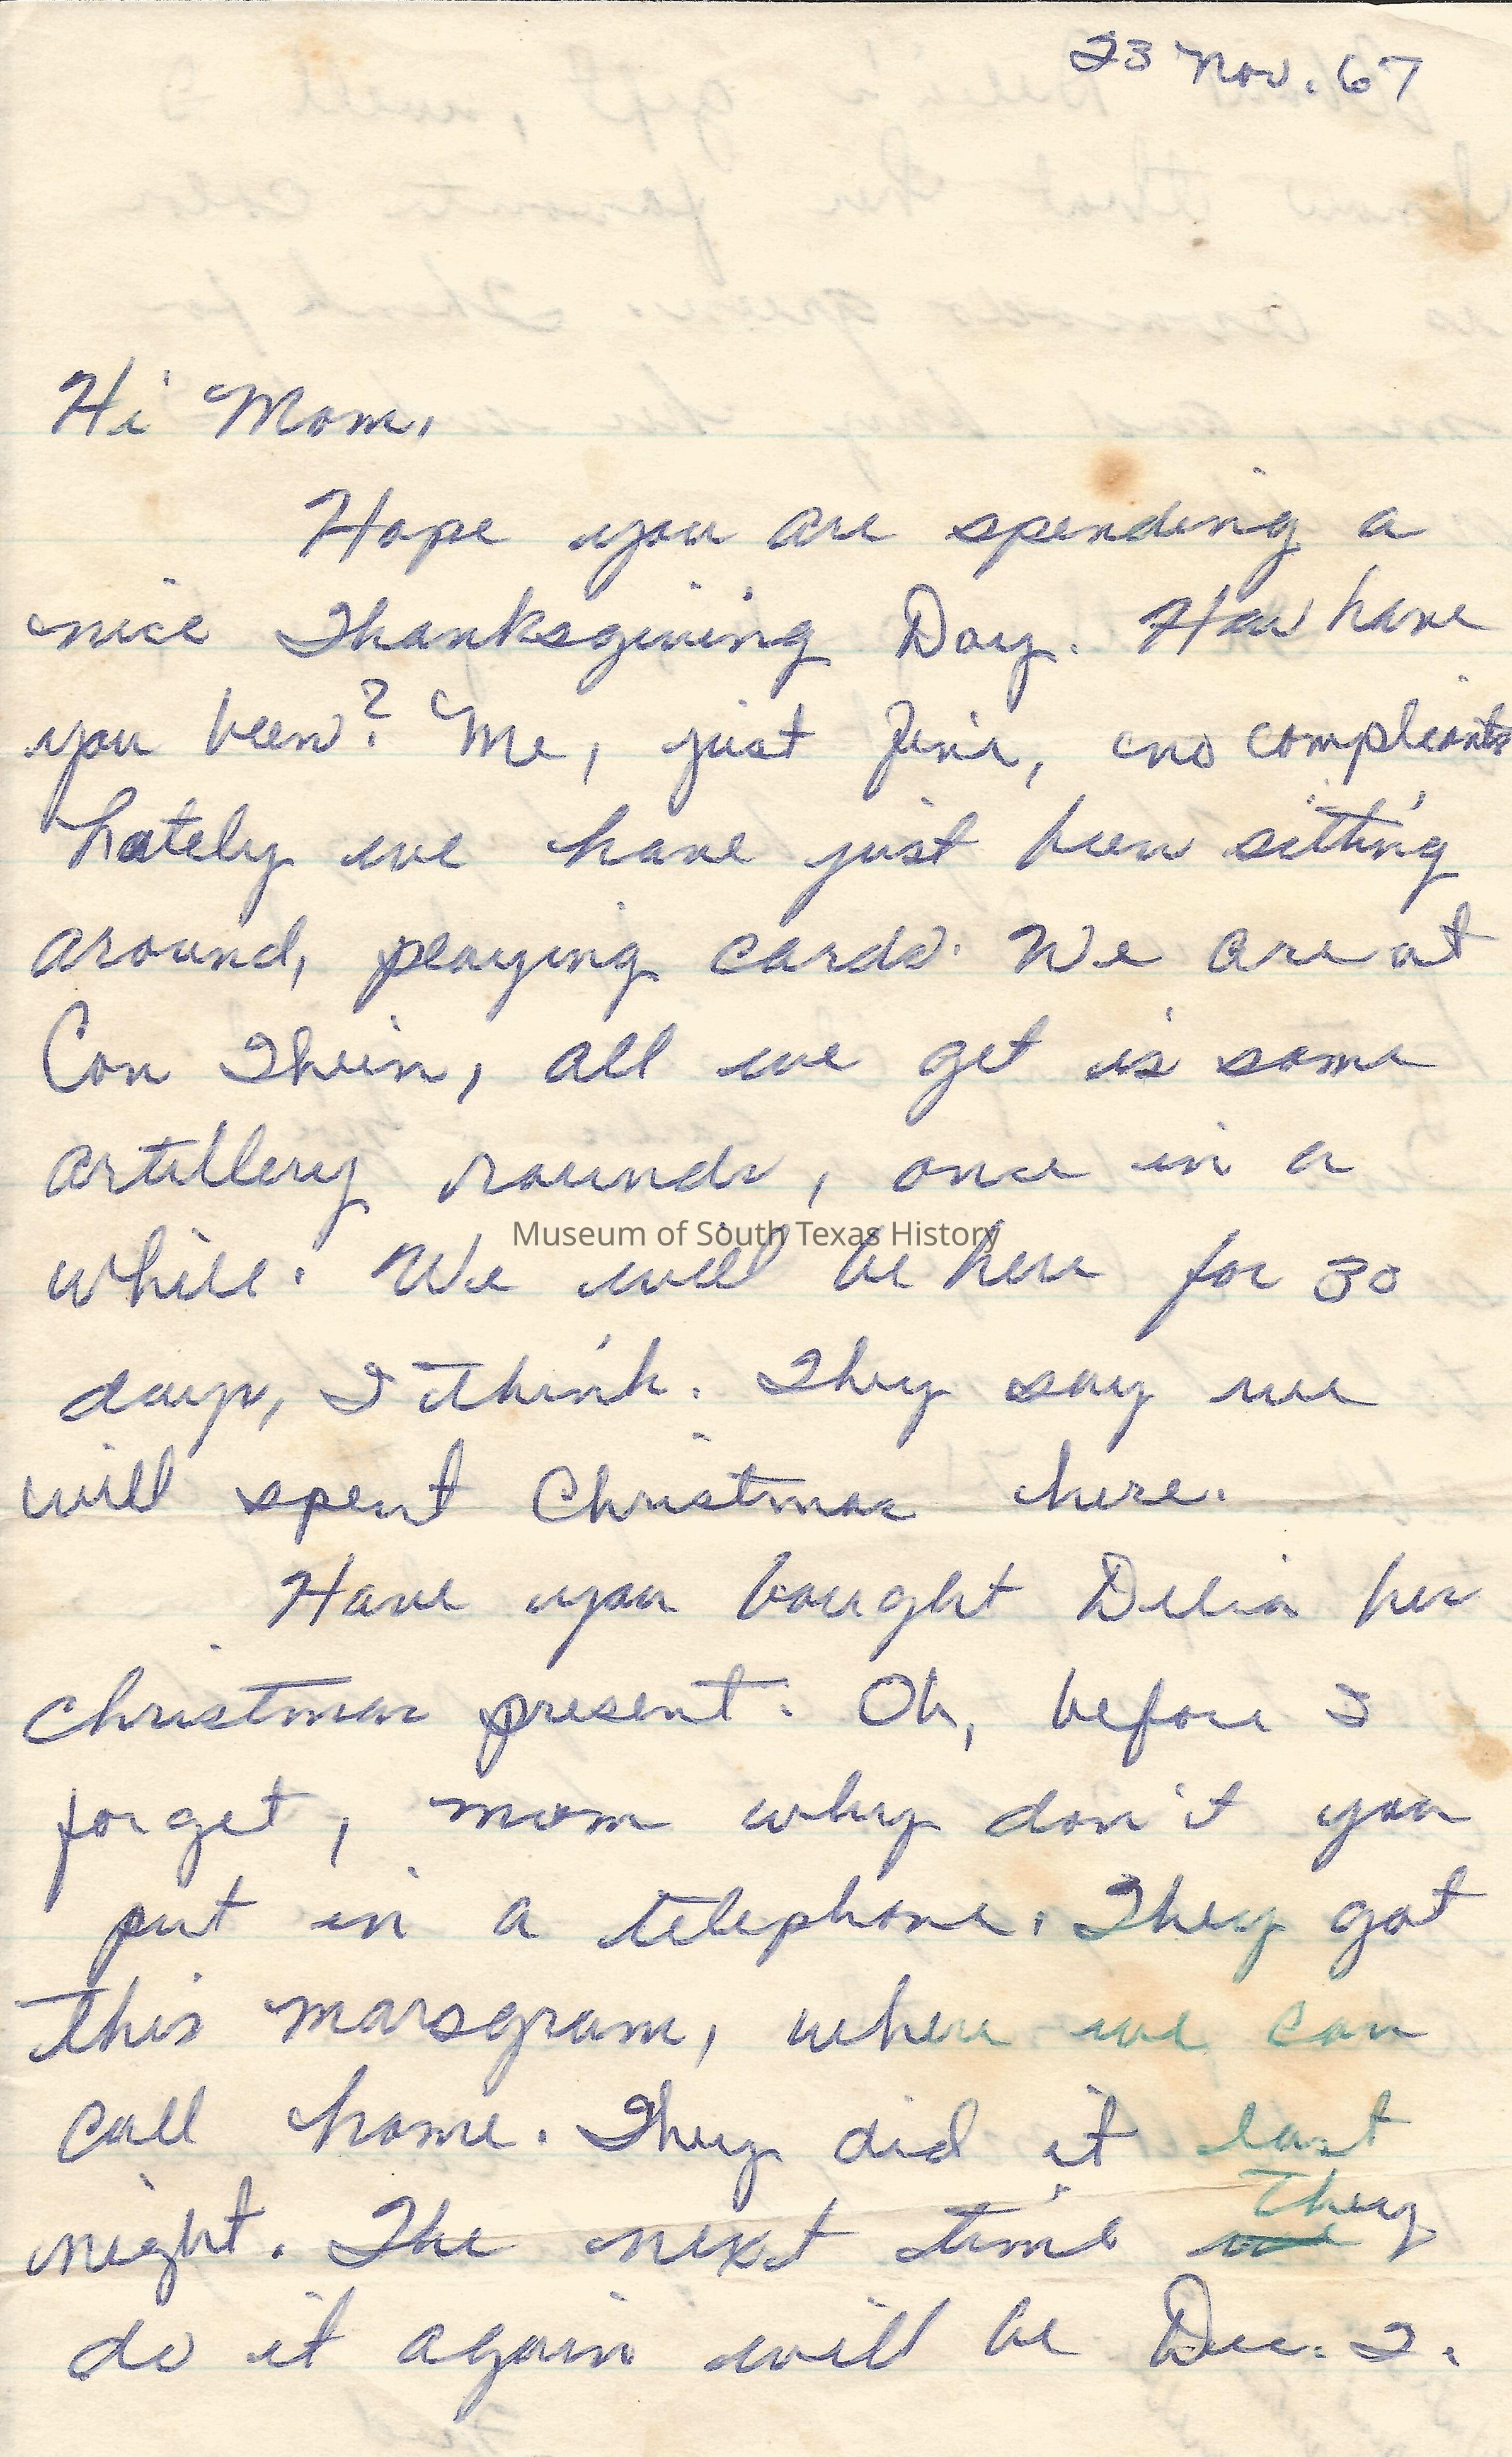 23 Nov. 67
Hi Mom,
Hope you are spending a
nice Thanksgiving Day. How have
you been? Me, just fine, no complients
Lately we have just been sitting
around, playing cards. We are at
Con Thein, all we get is some
artillery rounds, once in a
while. We will be here for 30
days, I think. They say we
will spent Christmas here.
Have you bought Delia her
christmas present. Oh, before I
forget, mom why don't you
put in a telephone. They got
this marsgram, where we can
call home. They did it last
night. The next time they
do it again will be Dec. 2.
Museum of South Texas History